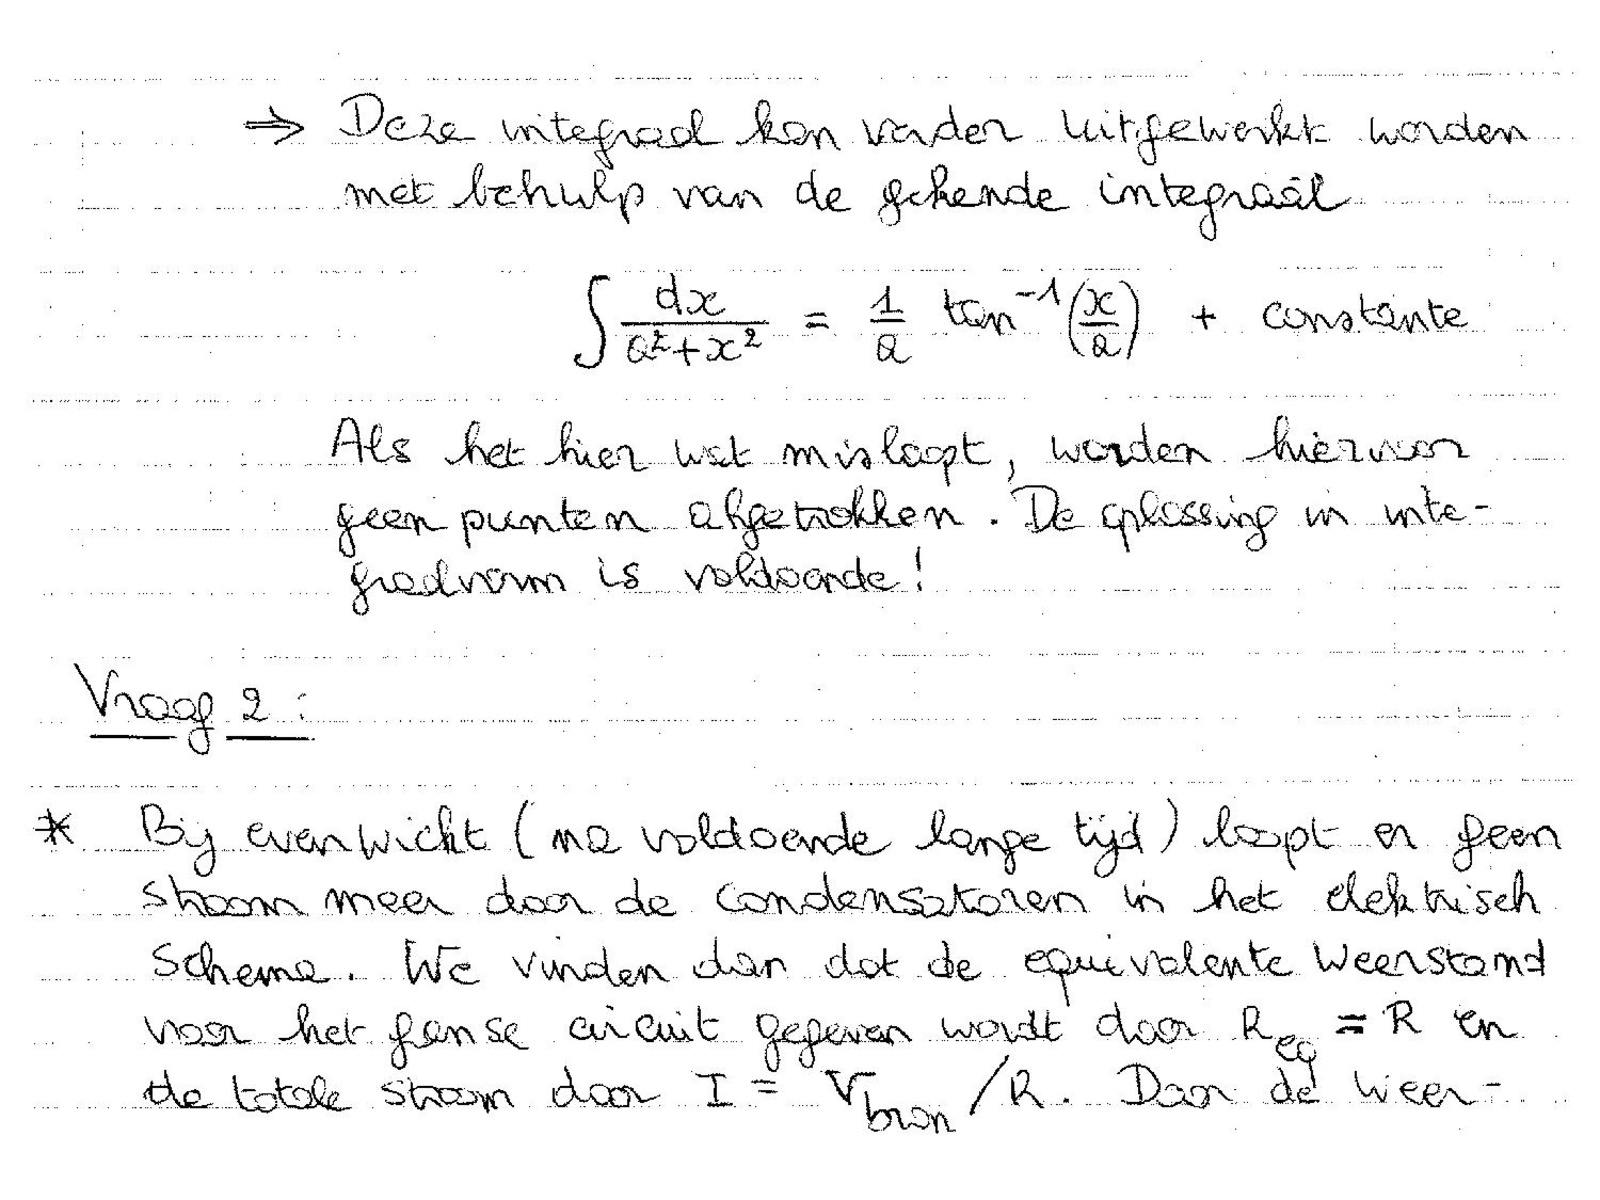 ⇒ Deze integraal kan verder uitgewerkt worden
met behulp van de gekende integraal
∫ dx/(a²+x²) = 1/a tan⁻¹(x/a) + constante
Als het hier wat misloopt, worden hiervoor
geen punten afgetrokken. De oplossing in inte-
graalvorm is voldoende!
Vraag 2 :
* Bij evenwicht (na voldoende lange tijd) loopt er geen
stroom meer door de condensatoren in het elektrisch
schema. We vinden dan dat de equivalente weerstand
voor het ganse circuit gegeven wordt door R_eq = R en
de totale stroom door I = V_bron /R. Door de weer-